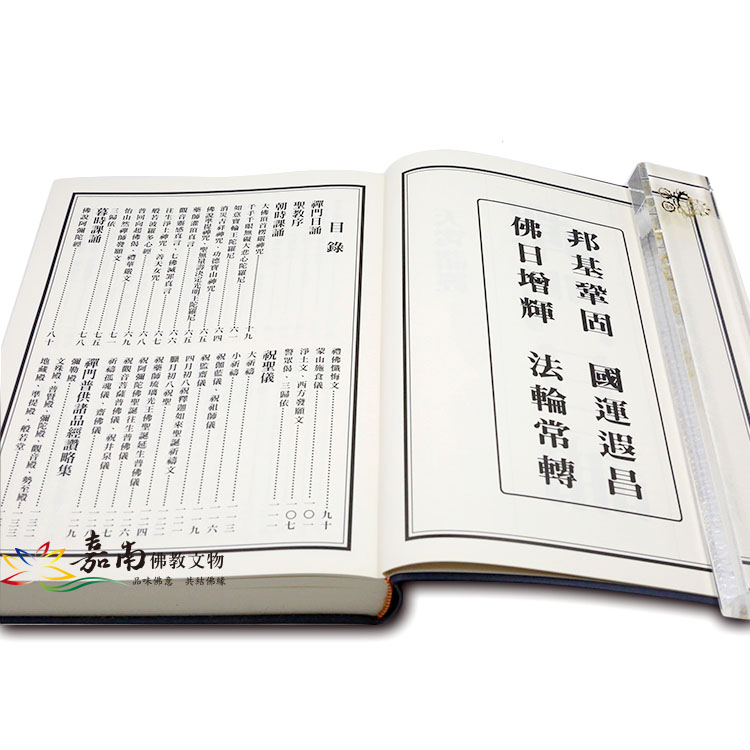 邦基鞏固　國運遐昌
佛日增輝　法輪常轉
目錄
禪門日誦
聖教序
朝時課誦
大佛頂首楞嚴神咒
千手千眼無礙大悲心陀羅尼……十九
如意寶輪王陀羅尼……六一
消災吉祥神咒、功德寶山神咒……六四
佛說準提神咒、聖無量壽決定光明王陀羅尼……六五
藥師灌頂真言……六五
觀音靈感真言、七佛滅罪真言……六六
往生淨土神咒、善天女咒……六七
般若波羅多心經……六八
普回向起佛偈、禮華嚴文……六九
怡山然禪師發願文……七一
三歸依……七五
暮時課誦……七八
佛說阿彌陀經……八十
禮佛懺悔文……九十
蒙山施食儀……一〇一
淨土文、西方發願文
警眾偈、三歸依……一〇七
祝聖儀……一一一
大祈禱……一一一
小祈禱……一一三
祝伽藍儀、祝祖師儀……一一六
祝監齋儀
四月初八祝釋迦如來聖誕祈禱文
臘月初八祝聖
祝藥師琉璃光王佛聖誕延生普佛儀
祝阿彌陀佛聖誕往生普佛儀
祝觀音菩薩普佛儀、祝井泉儀
祈禱孤魂儀、齋佛儀
禪門普供諸品經讚略集
彌勒殿
文殊殿、普賢殿、彌陀殿、觀音殿、勢至殿
地藏殿、準提殿、般若堂
嘉南佛教文物
品味佛意　共結佛緣